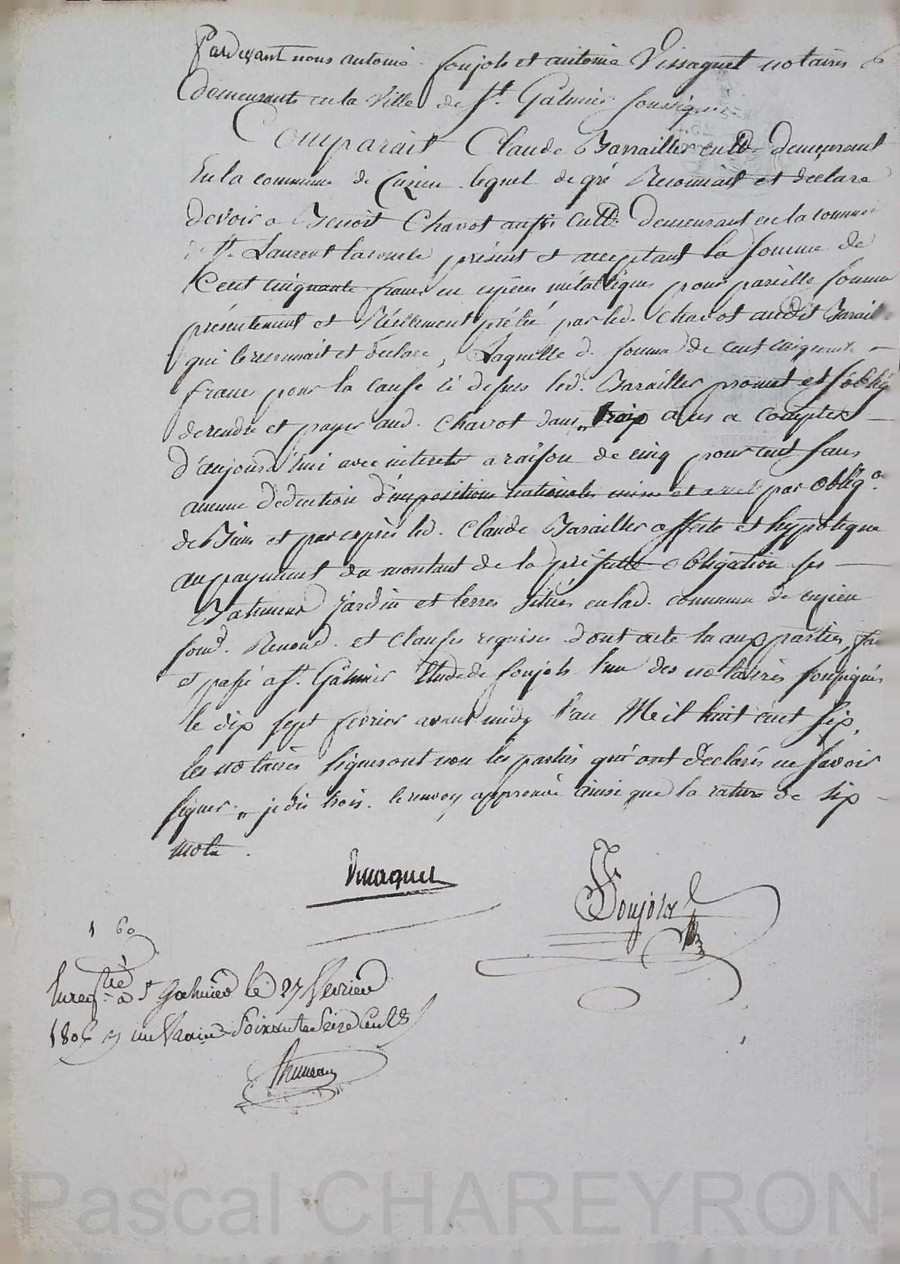 Pardevant nous antoine foujols et antoine Vissaguet notaires
demeurants en la ville de St. Galmier soussignés
Comparait Claude Barrailler cultr demeurant
En la commune de Cuzieu lequel de gré Reconnait et declare
devoir a Benoit Chavot aussi cultr demeurant en la commune
St. Laurent laconche présent et acceptant la somme de
Cent cinquante francs en espèces métalliques pour pareille somme
présentement et Réellement prêtée par led. Chavot audit Barail
qui le reconnait et declare, Laquelle d. somme de cent cinquante
francs pour la cause ci dessus led. Barailler promet et s'oblige
de rendre et payer aud. Chavot dans trois ans a compter
d'aujourd'hui avec interets a raison de cinq pour cent sans
aucune déduction d'impositions nationales par obligon
de Biens et par exprès led. Claude Barailler affecte et hypotèque
au payement du montant de la présente obligation ses
Batiments Jardin et terres situés en lad. commune de cuzieu
soud. Renond. et clauses requises dont acte lu aux parties, fait
et passé a St. Galmier Etude de foujols l'un des notaires soussignés
le dix sept fevrier avant midy l'an Mil huit cent six,
les notaires signeront non les parties qui ont déclarés ne savoir
signer. je dis trois. le renvoy approuvé ainsi que la rature de six
mots.
Vissaguet
Foujols
1 60
Enregtré a St Galmier le 27 Fevrier
1806 un franc Soixante Seize cent
Pascal CHAREYRON